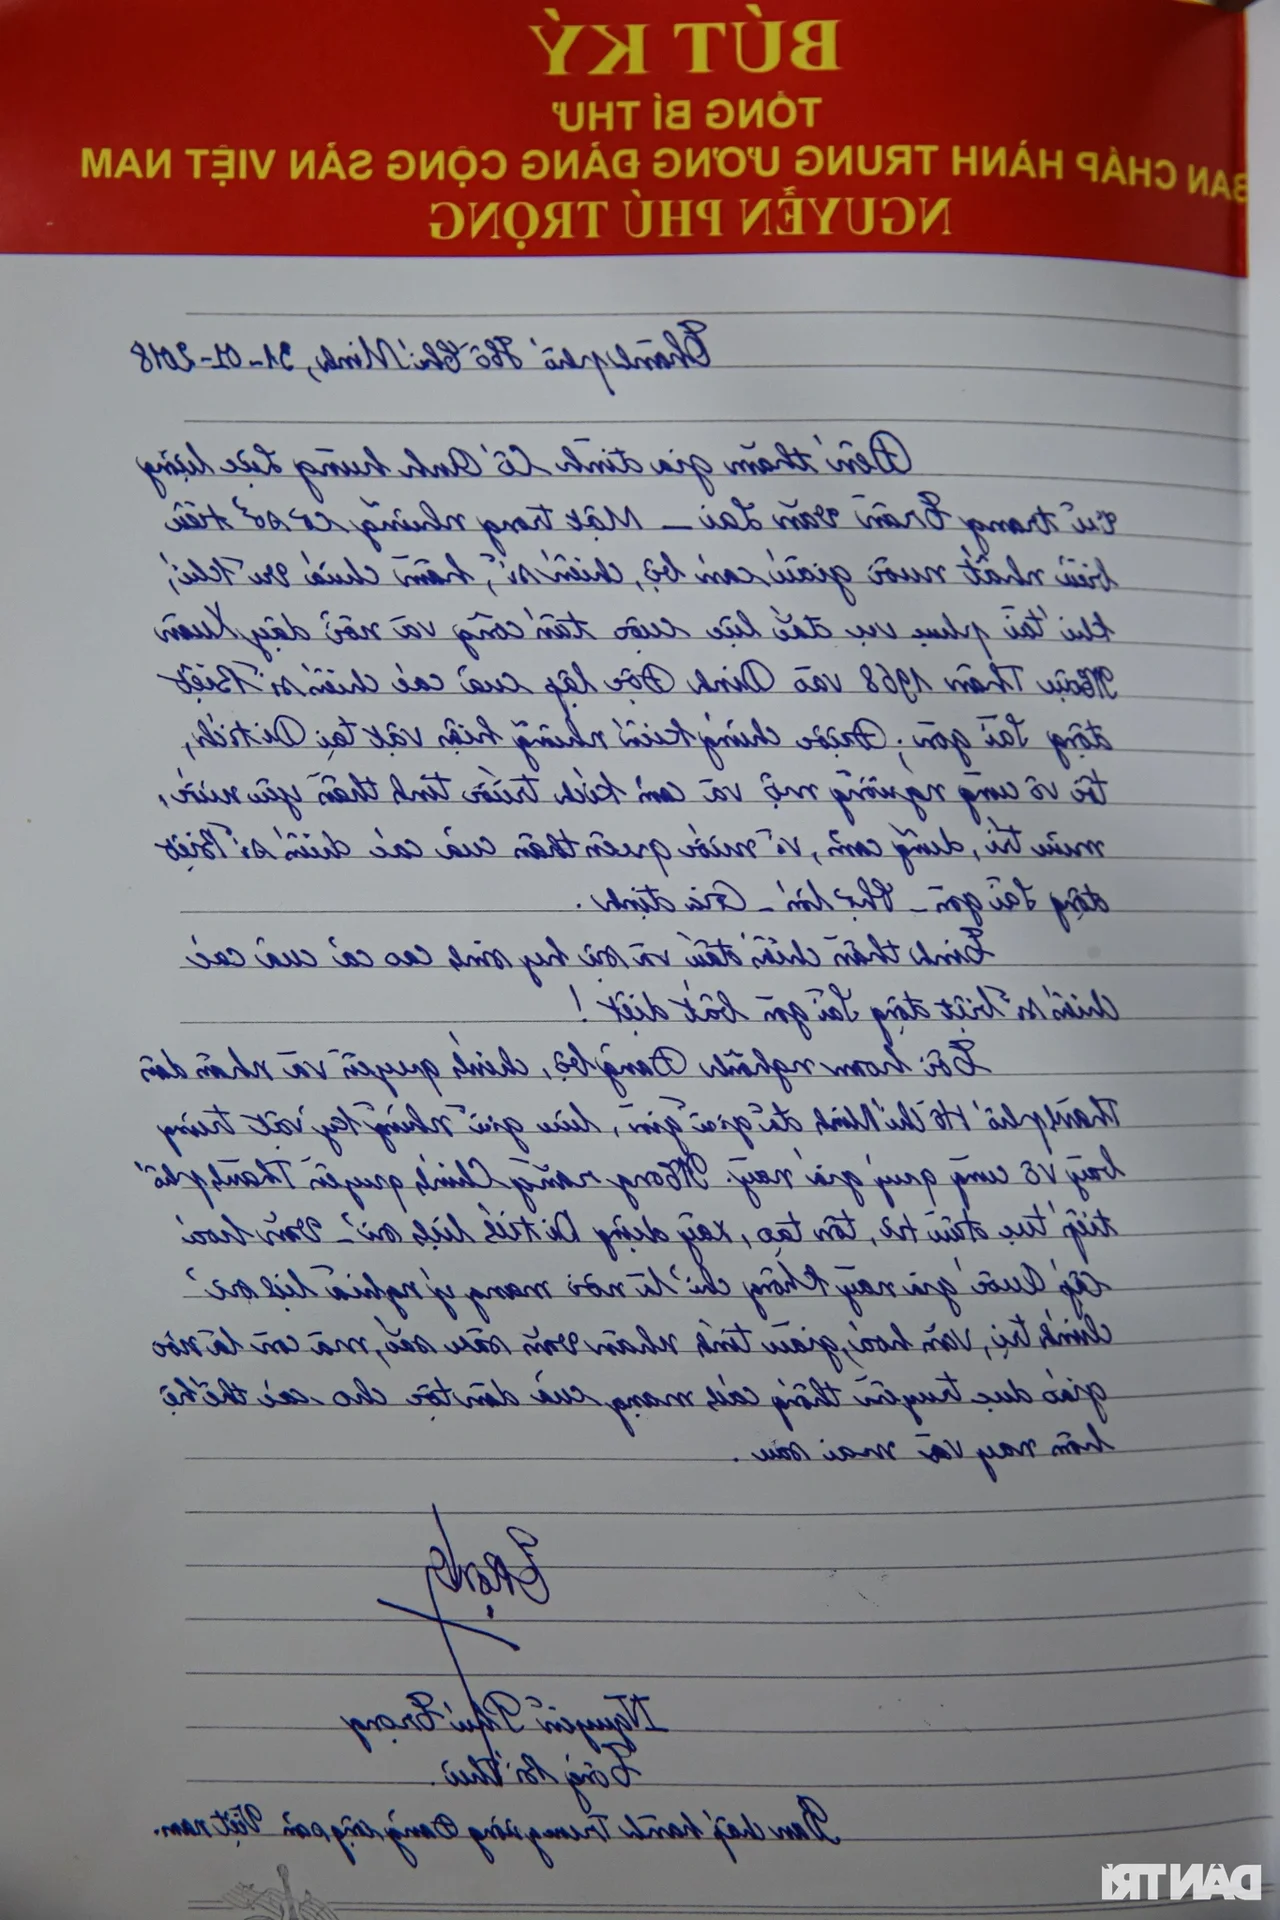 BÚT KÝ
TỔNG BÍ THƯ
BAN CHẤP HÀNH TRUNG ƯƠNG ĐẢNG CỘNG SẢN VIỆT NAM
NGUYỄN PHÚ TRỌNG
Thành phố Hồ Chí Minh, 31-01-2018
Đến thăm gia đình Cố Anh hùng Lực lượng
vũ trang Trần Văn Lai – Một trong những cơ sở tiêu
biểu nhất nuôi giấu cán bộ, chiến sĩ, hầm chứa vũ khí,
khí tài phục vụ đắc lực cuộc tấn công và nổi dậy Xuân
Mậu Thân 1968 vào Dinh Độc lập của các chiến sĩ Biệt
động Sài gòn; Được chứng kiến những hiện vật tại Di tích,
tôi vô cùng ngưỡng mộ và cảm kích trước tinh thần yêu nước,
mưu trí, dũng cảm, vì nước quên thân của các chiến sĩ Biệt
động Sài gòn – Chợ lớn – Gia định.
Tinh thần chiến đấu và sự hy sinh cao cả của các
chiến sĩ biệt động Sài gòn bất diệt!
Tôi hoan nghênh Đảng bộ, chính quyền và nhân dân
Thành phố Hồ Chí Minh đã giữ gìn, lưu giữ những kỷ vật trưng
bày vô cùng quý giá này. Mong rằng Chính quyền Thành phố
tiếp tục đầu tư, tôn tạo, xây dựng Di tích lịch sử – Văn hoá
cấp Quốc gia này không chỉ là nơi mang ý nghĩa lịch sử
chính trị, văn hoá, giàu tính nhân văn sâu sắc, mà còn là nơi
giáo dục truyền thống cách mạng của dân tộc cho các thế hệ
hôm nay và mai sau.
Trọng
Nguyễn Phú Trọng
Tổng Bí thư
Ban chấp hành Trung ương Đảng cộng sản Việt nam.
DÂN TRÍ